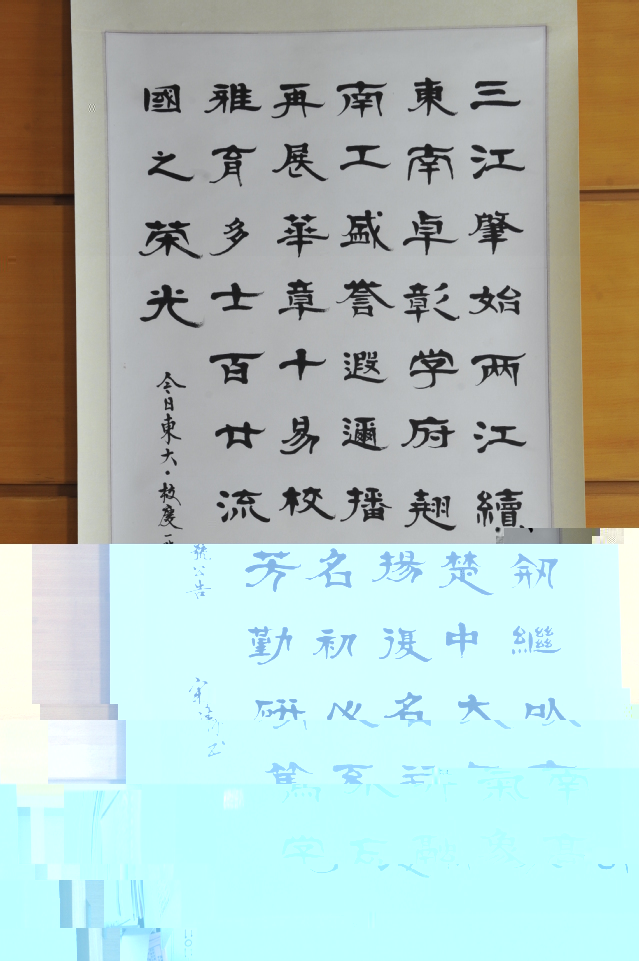 三江肇始两江續剏繼以南高
東南卓彰学府翹楚中大
南工盛誉遐邇播揚復名
再展華章十易校名初心
雅育多士百廿流芳勤研篤
國之荣光
今日東大·校慶一號公告